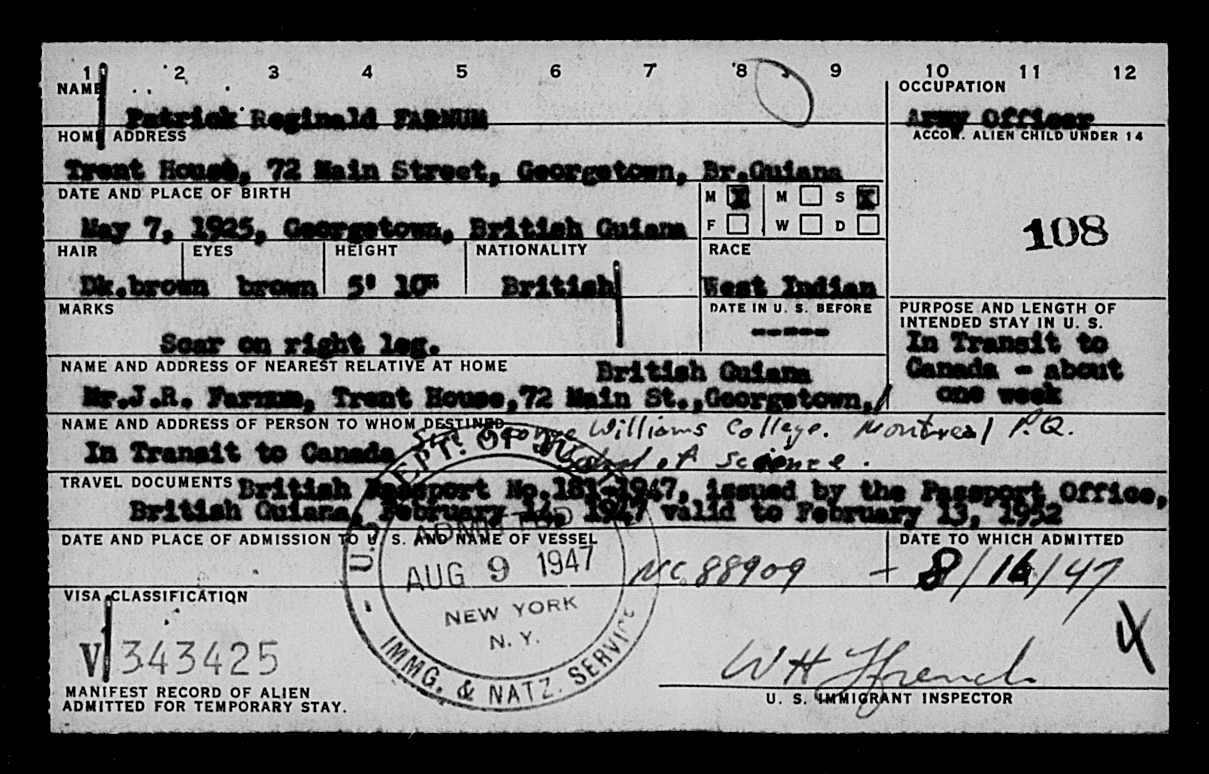 1 2 3 4 5 6 7 8 9 10 11 12
NAME
Patrick Reginald FARNUM
OCCUPATION
Army Officer
HOME ADDRESS
Trent House, 72 Main Street, Georgetown, Br.Guiana
ACCOM. ALIEN CHILD UNDER 14
DATE AND PLACE OF BIRTH
May 7, 1925, Georgetown, British Guiana
M X M S X
F W D
108
HAIR EYES HEIGHT NATIONALITY RACE
Dk.brown brown 5' 10" British West Indian
MARKS
Scar on right leg.
DATE IN U. S. BEFORE
-----
PURPOSE AND LENGTH OF
INTENDED STAY IN U. S.
In Transit to
Canada - about
one week
NAME AND ADDRESS OF NEAREST RELATIVE AT HOME
British Guiana
Mr.J.R. Farnum, Trent House,72 Main St.,Georgetown,/
NAME AND ADDRESS OF PERSON TO WHOM DESTINED
Sir George Williams College. Montreal P.Q.
In Transit to Canada
School of Science.
TRAVEL DOCUMENTS
British Passport No.181-1947, issued by the Passport Office,
British Guiana, February 14, 1947 valid to February 13, 1952
DATE AND PLACE OF ADMISSION TO U. S. AND NAME OF VESSEL
NC 88909 -
DATE TO WHICH ADMITTED
8/16/47
U. S. DEPT. OF JUSTICE
ADMITTED
AUG 9 1947
NEW YORK
N. Y.
IMMG. & NATZ. SERVICE
VISA CLASSIFICATION
V 343425
MANIFEST RECORD OF ALIEN
ADMITTED FOR TEMPORARY STAY.
W H Ffrench
U. S. IMMIGRANT INSPECTOR